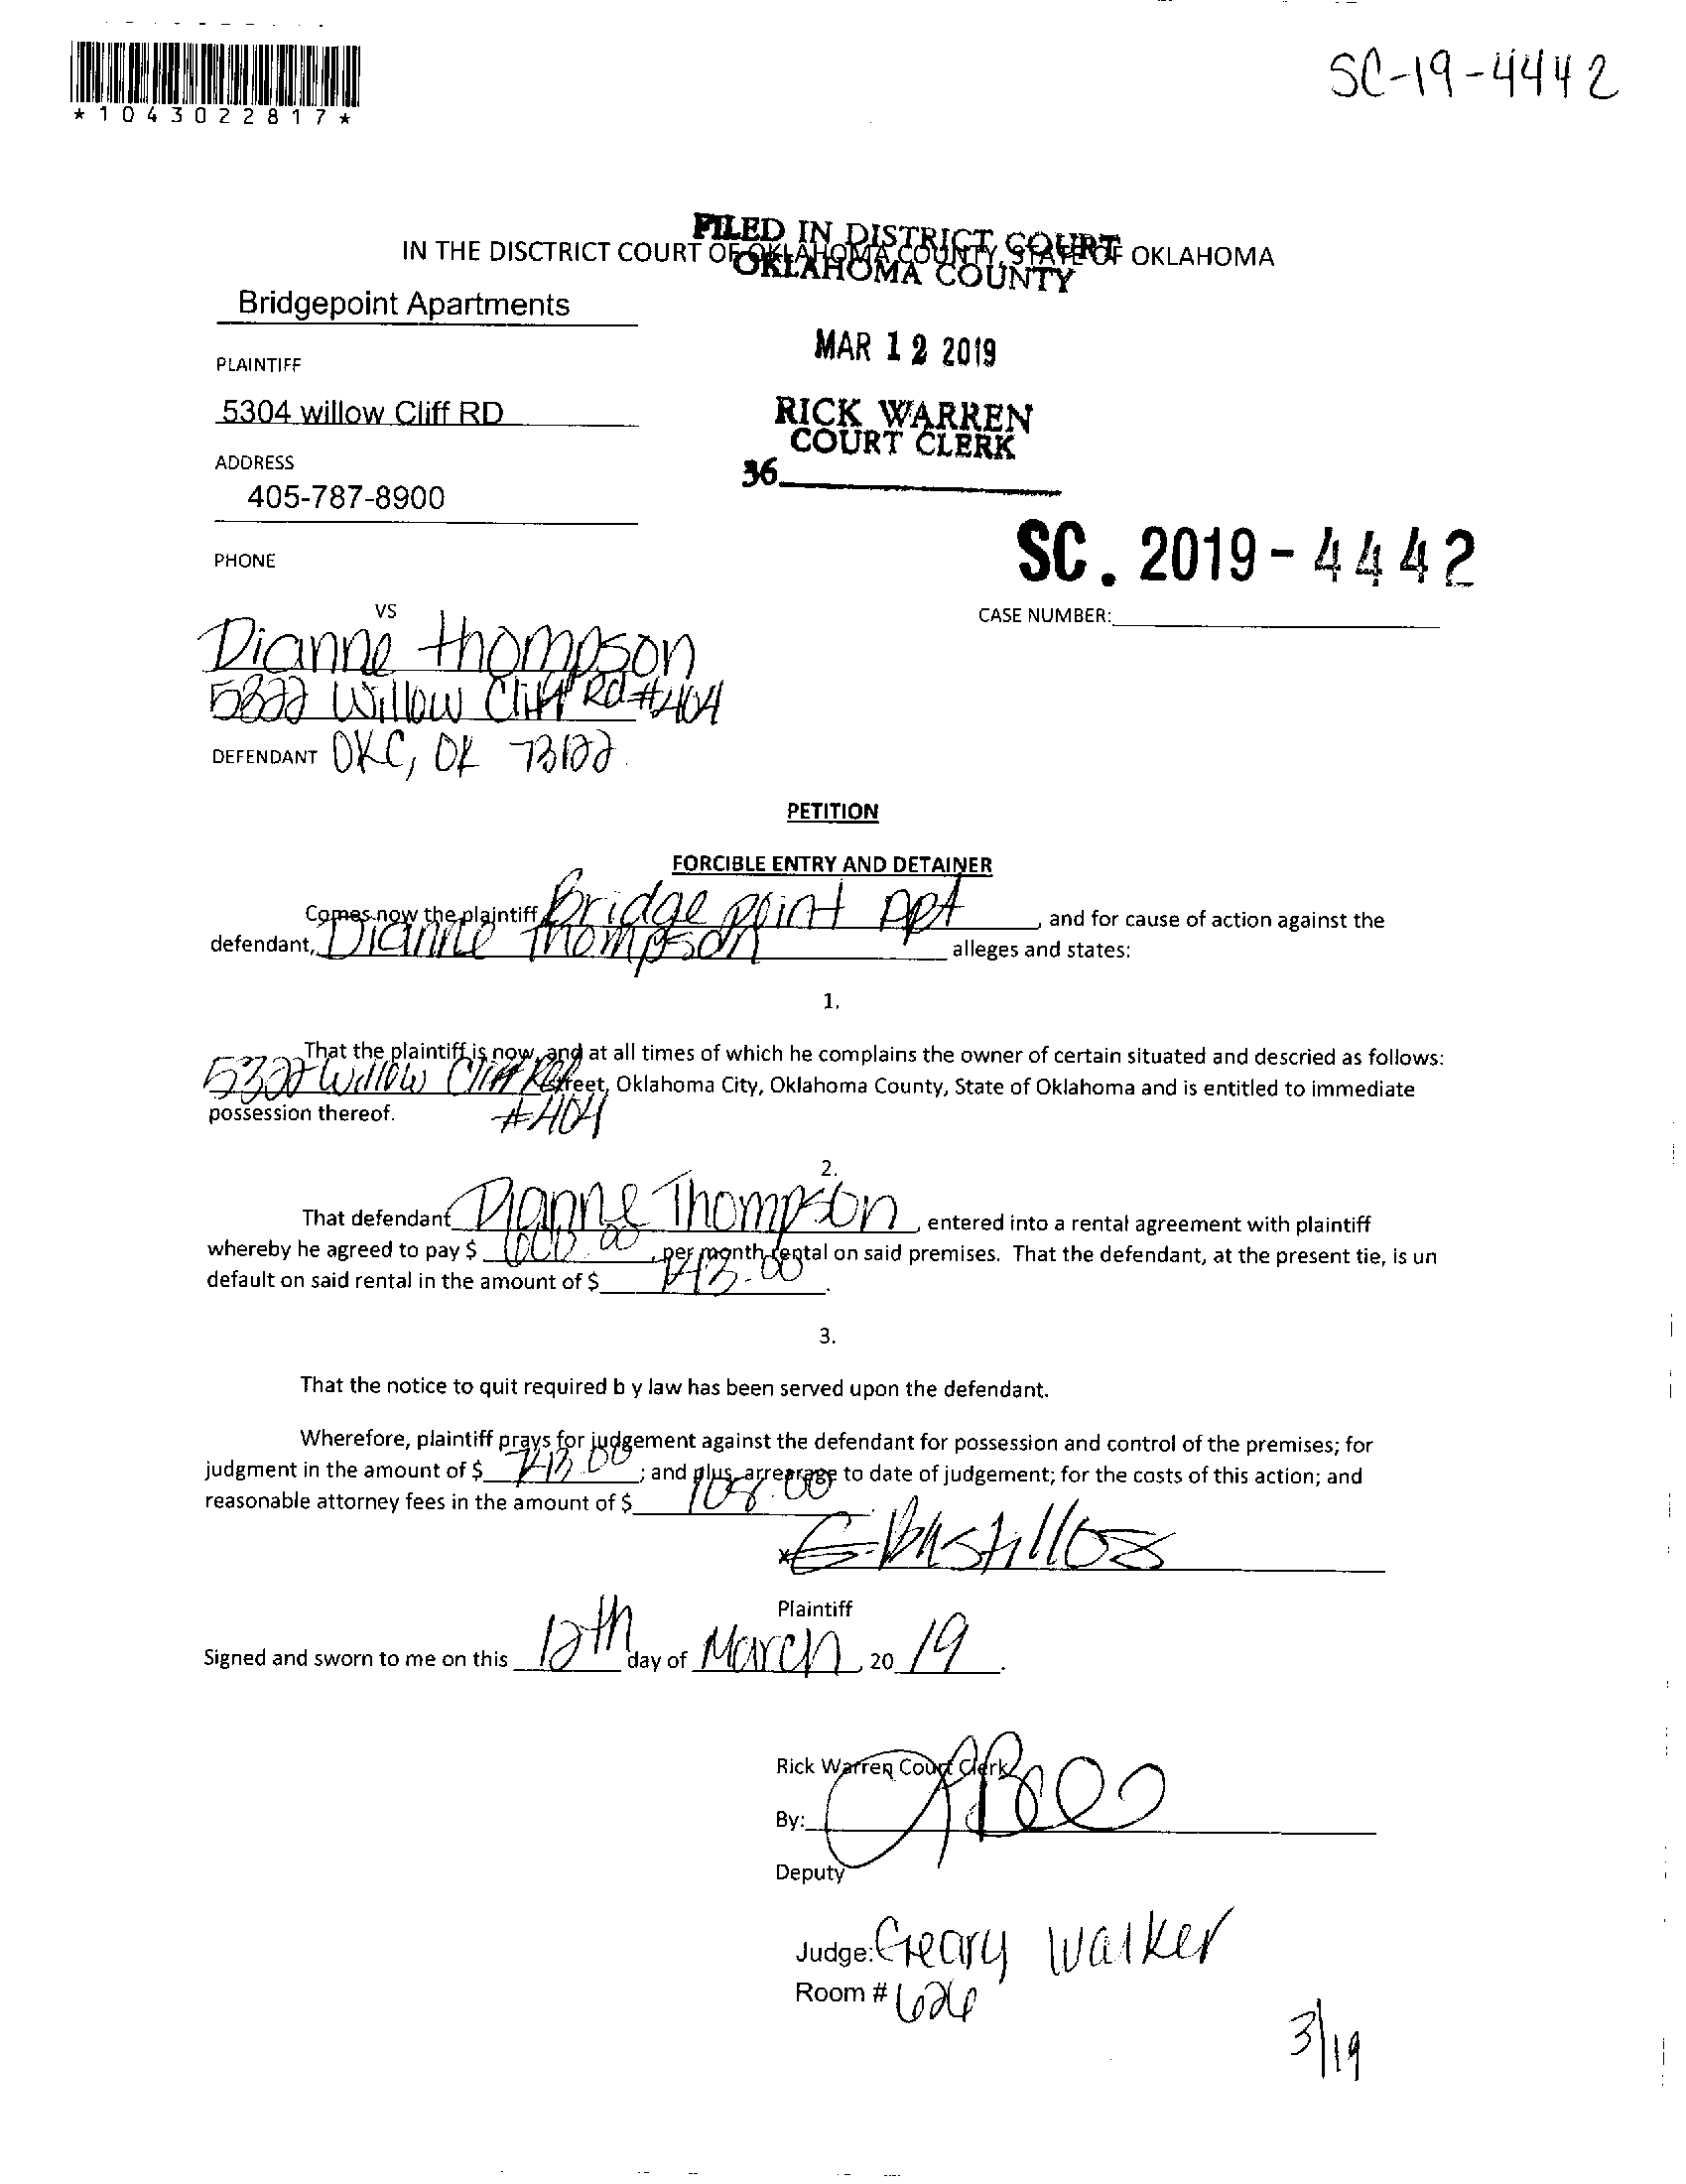 SC-19-4442
*1043022817*
FILED IN DISTRICT COURT
OKLAHOMA COUNTY
IN THE DISCTRICT COURT OF OKLAHOMA COUNTY, STATE OF OKLAHOMA
Bridgepoint Apartments
MAR 12 2019
PLAINTIFF
5304 willow Cliff RD
RICK WARREN
COURT CLERK
ADDRESS
36
405-787-8900
SC. 2019-4442
PHONE
CASE NUMBER:
VS
Dianne thompson
5322 Willow Cliff Rd #404
DEFENDANT OKC, OK 73122
PETITION
FORCIBLE ENTRY AND DETAINER
Comes now the plaintiff Bridge point Apt, and for cause of action against the
defendant, Dianne Thompson alleges and states:
1.
That the plaintiff is now, and at all times of which he complains the owner of certain situated and descried as follows:
5322 Willow Cliff Rd Street, Oklahoma City, Oklahoma County, State of Oklahoma and is entitled to immediate
possession thereof. #404
2.
That defendant Dianne Thompson, entered into a rental agreement with plaintiff
whereby he agreed to pay $ .00, per month rental on said premises. That the defendant, at the present tie, is un
default on said rental in the amount of $ .00.
3.
That the notice to quit required b y law has been served upon the defendant.
Wherefore, plaintiff prays for judgement against the defendant for possession and control of the premises; for
judgment in the amount of $ .00; and plus arrearage to date of judgement; for the costs of this action; and
reasonable attorney fees in the amount of $ 108.00
x E. Bustillos
Plaintiff
Signed and sworn to me on this 12th day of March 20 19.
Rick Warren Court Clerk
By:
Deputy
Judge: Geary Walker
Room # 626
3/19